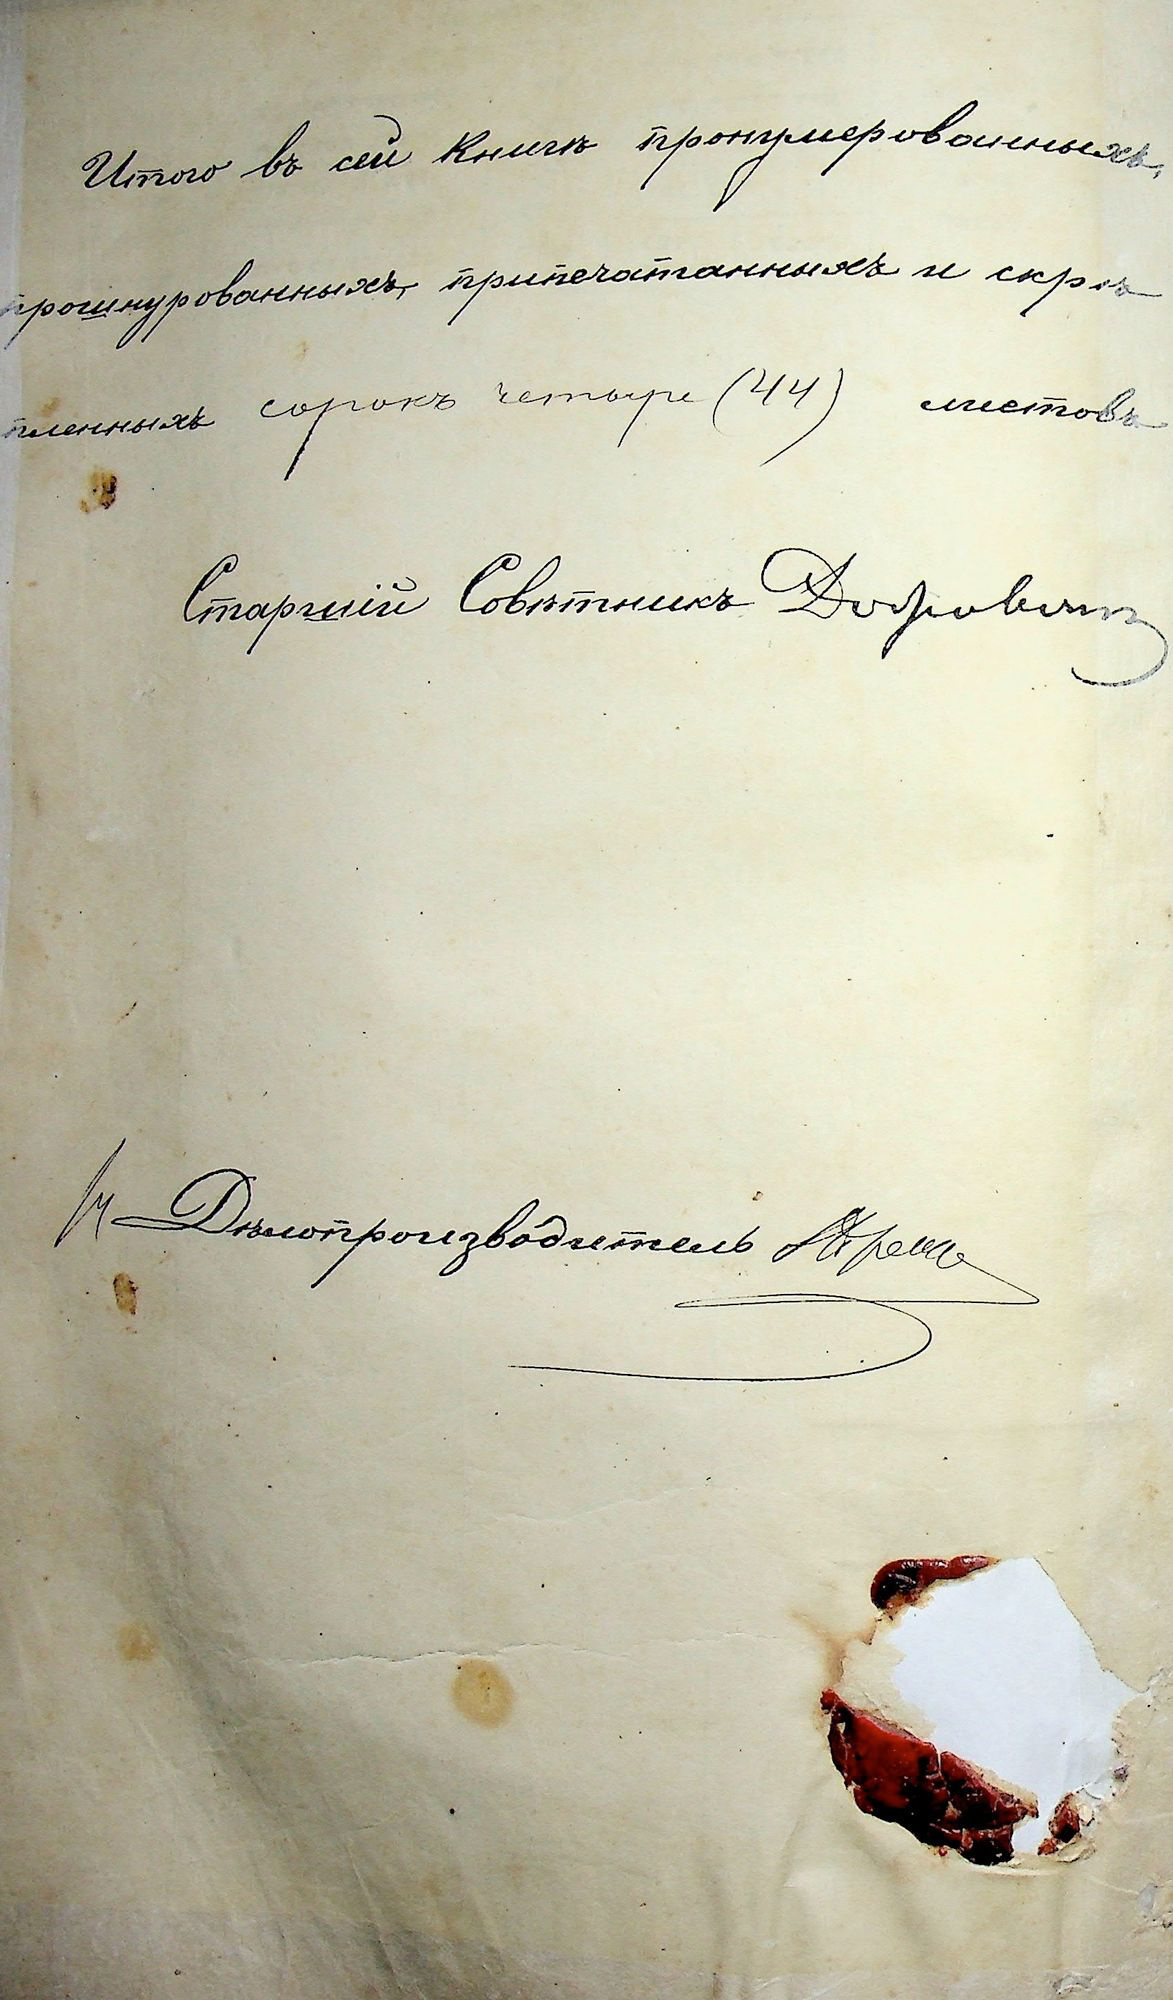 Итого въ сей книгѣ пронумерованныхъ,
прошнурованныхъ, припечатанныхъ и скрѣ
пленныхъ сорокъ четыре (44) листовъ
Старшій Совѣтникъ
Дѣлопроизводитель